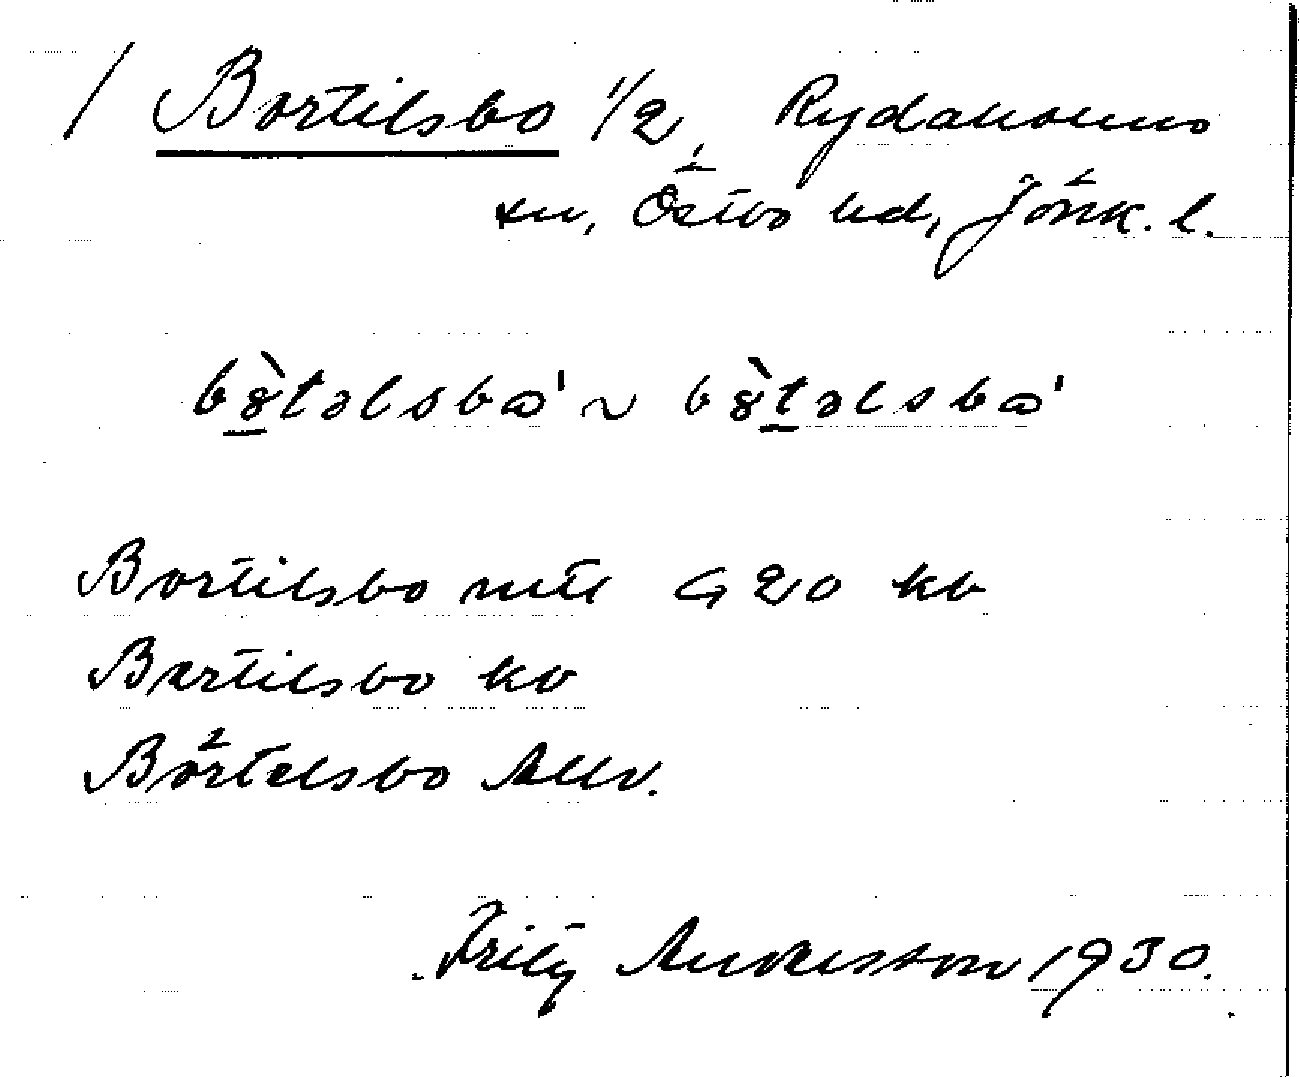 / Bortilsbo 1/2, Rydaholms
sn, Östbo hd, Jönk. l.
bȣ̀təlsbɷ' ~ bȣ̀təlsbɷ'
Bortilsbo mtl G 20 kb
Bartilsbo kb
Börtelsbo Allv.
Fritz Andersson 1930.